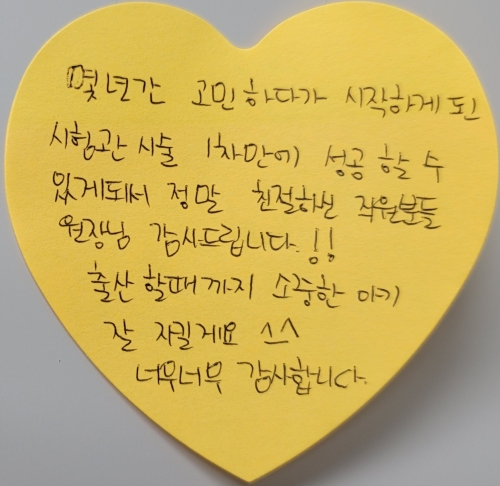 몇년간 고민하다가 시작하게 된
시험관 시술 1차만에 성공 할 수
있게되서 정말 친절하신 직원분들
원장님 감사드립니다.!!
출산 할때까지 소중한 아기
잘 지킬게요 ^^
너무너무 감사합니다.